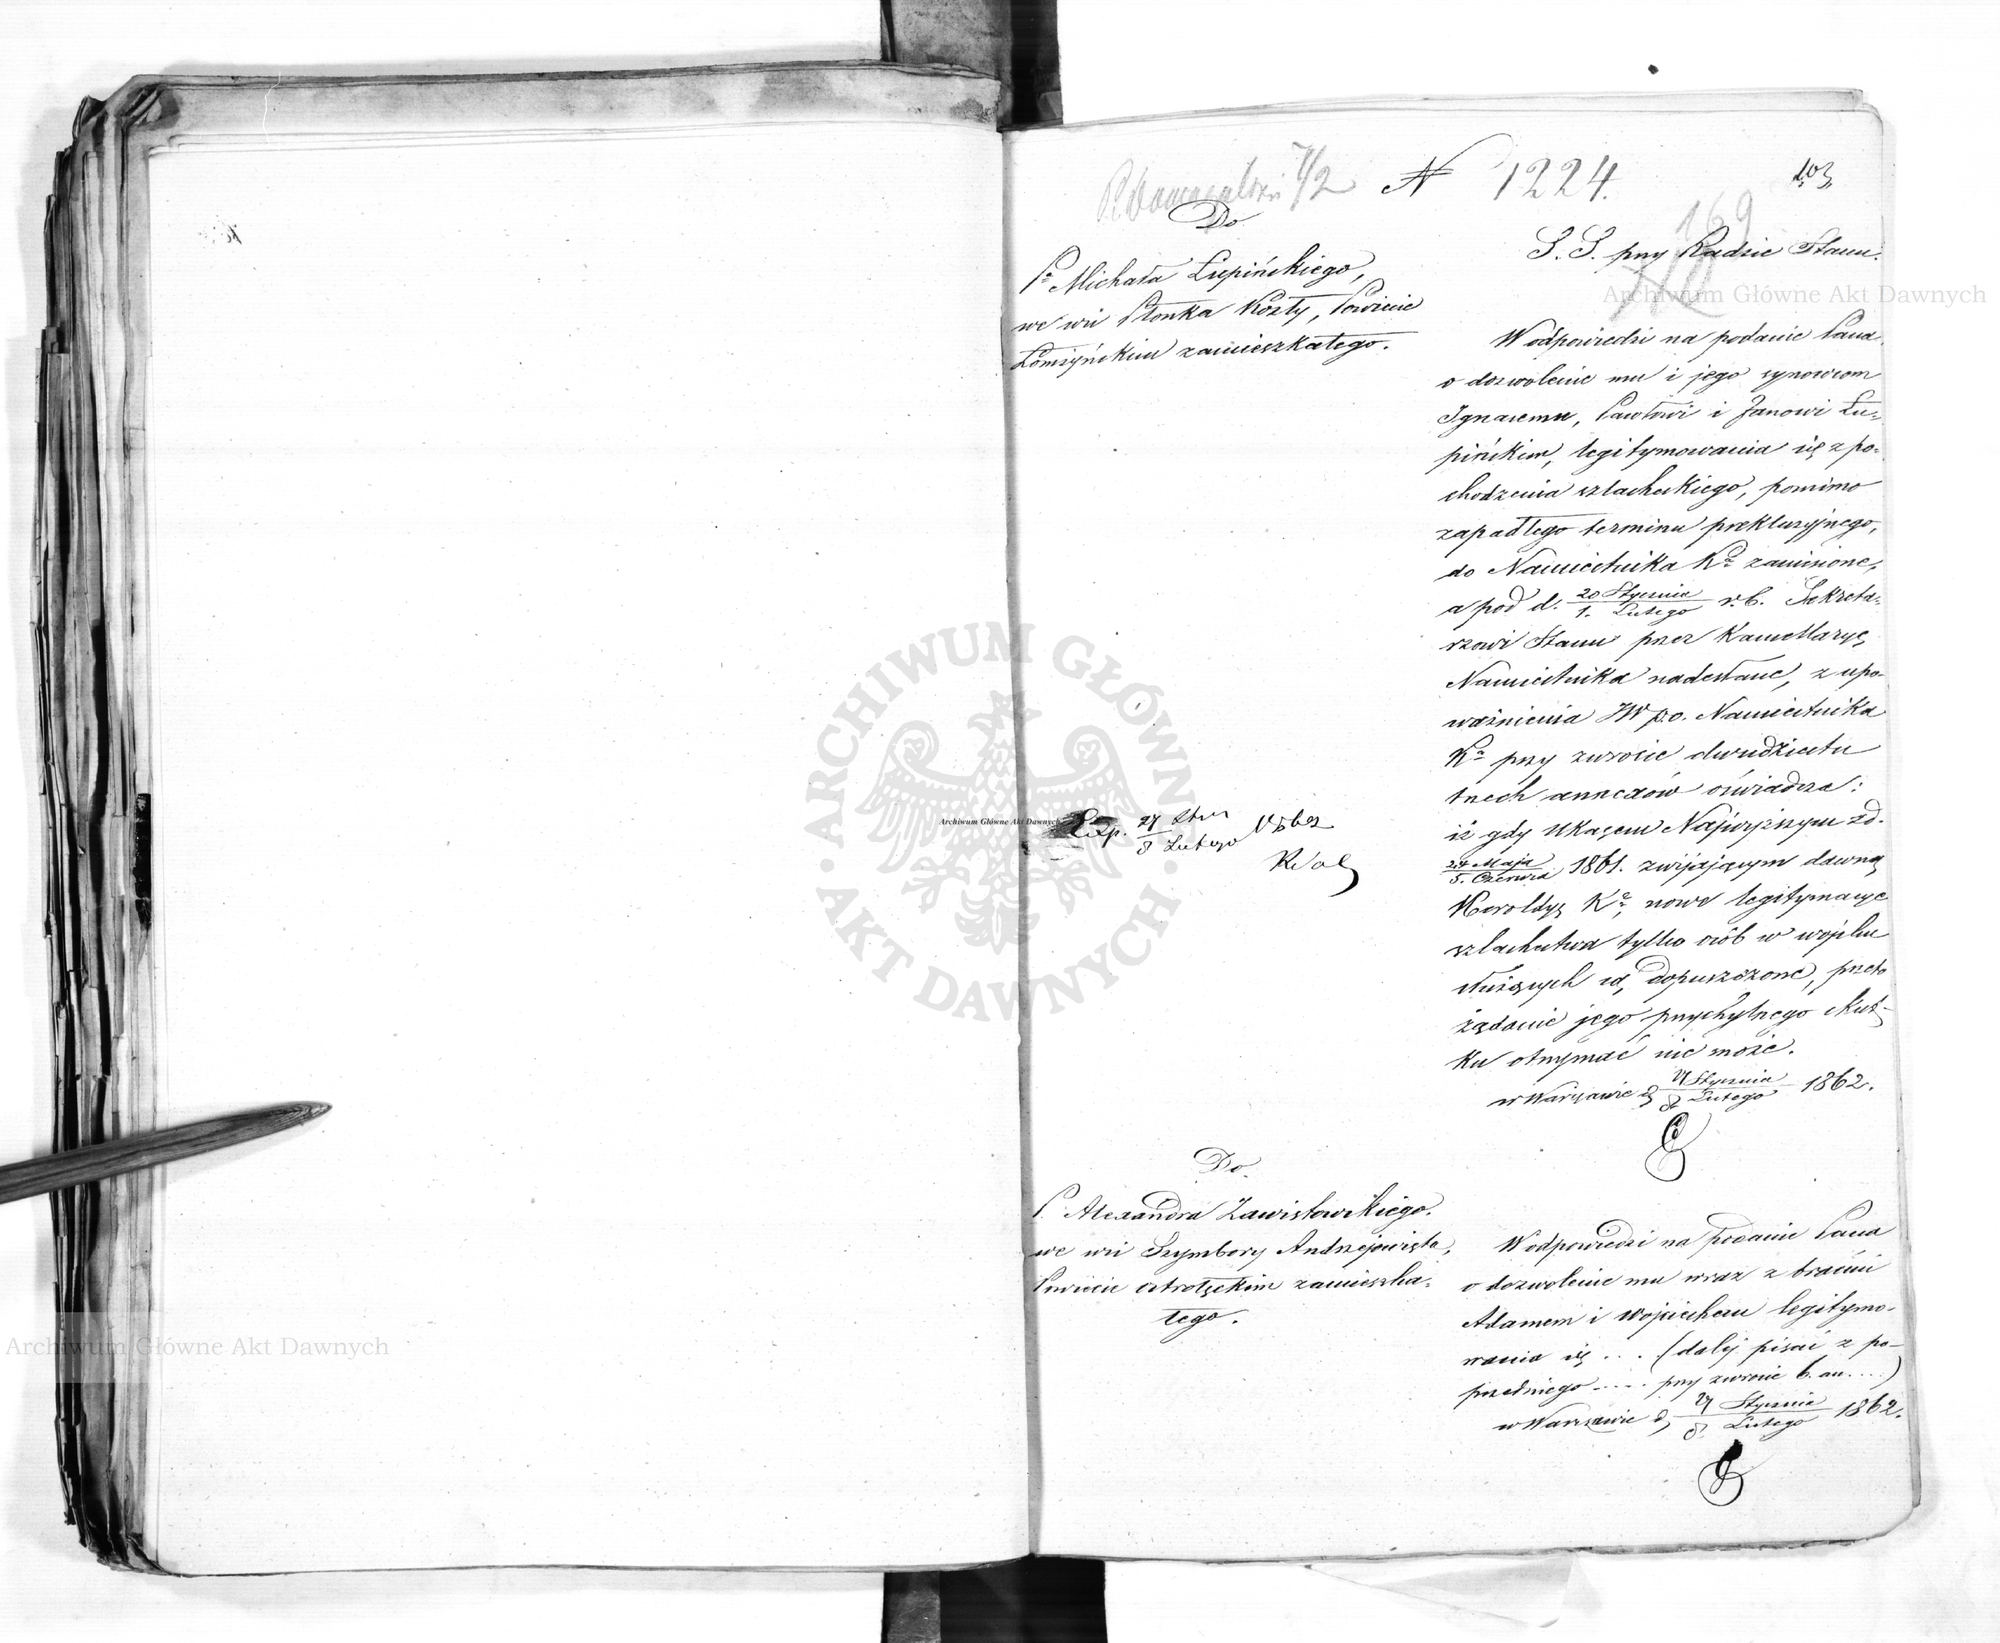 7/2 N 1224.
103
169
Do
Pa Michała Łupińskiego,
we wsi Płonka Kozły, Powiecie
Łomżyńskim zamieszkałego.
S. S. przy Radzie Stanu.
W odpowiedzi na podanie Pana
o dozwolenie mu i jego synowcom
Ignacemu, Pawłowi i Janowi Łu-
pińskim, legitymowania się z po-
chodzenia szlacheckiego, pomimo
zapadłego terminu prekluzyjnego,
do Namiestnika Ka zaniesione,
a pod d. 20 Stycznia / 1. Lutego r.b. Sekreta-
rzowi Stanu przez Kancellaryę
Namiestnika nadesłane, z upo-
ważnienia JW p.o. Namiestnika
Ka przy zwrocie dwudziestu
trzech annexów oświadcza:
iż gdy Ukazem Najwyższym z d.
24 Maja / 5. Czerwca 1861. zwijającym dawną
Heroldyę Ka, nowe legitymacye
szlachectwa tylko osób w wojsku
służących są dopuszczone, przeto
żądanie jego przychylnego skut-
ku otrzymać nie może.
w Warszawie d. 27 Stycznia / 8 Lutego 1862.
Exp. 27 Stycz / 8 Lutego
Do
P. Alexandra Zawistowskiego.
we wsi Szymbory Andrzejowięta,
Powiecie ostrołęckim zamieszka-
łego.
W odpowiedzi na podanie Pana
o dozwolenie mu wraz z braćmi
Adamem i Wojciechem legitymo-
wania się . . . (dalej pisać z po-
przedniego ..... przy zwrocie 6. an. ....)
w Warszawie d. 27 Stycznia / 8 Lutego 1862.
Archiwum Główne Akt Dawnych
Archiwum Główne Akt Dawnych
Archiwum Główne Akt Dawnych
ARCHIWUM GŁÓWNE AKT DAWNYCH